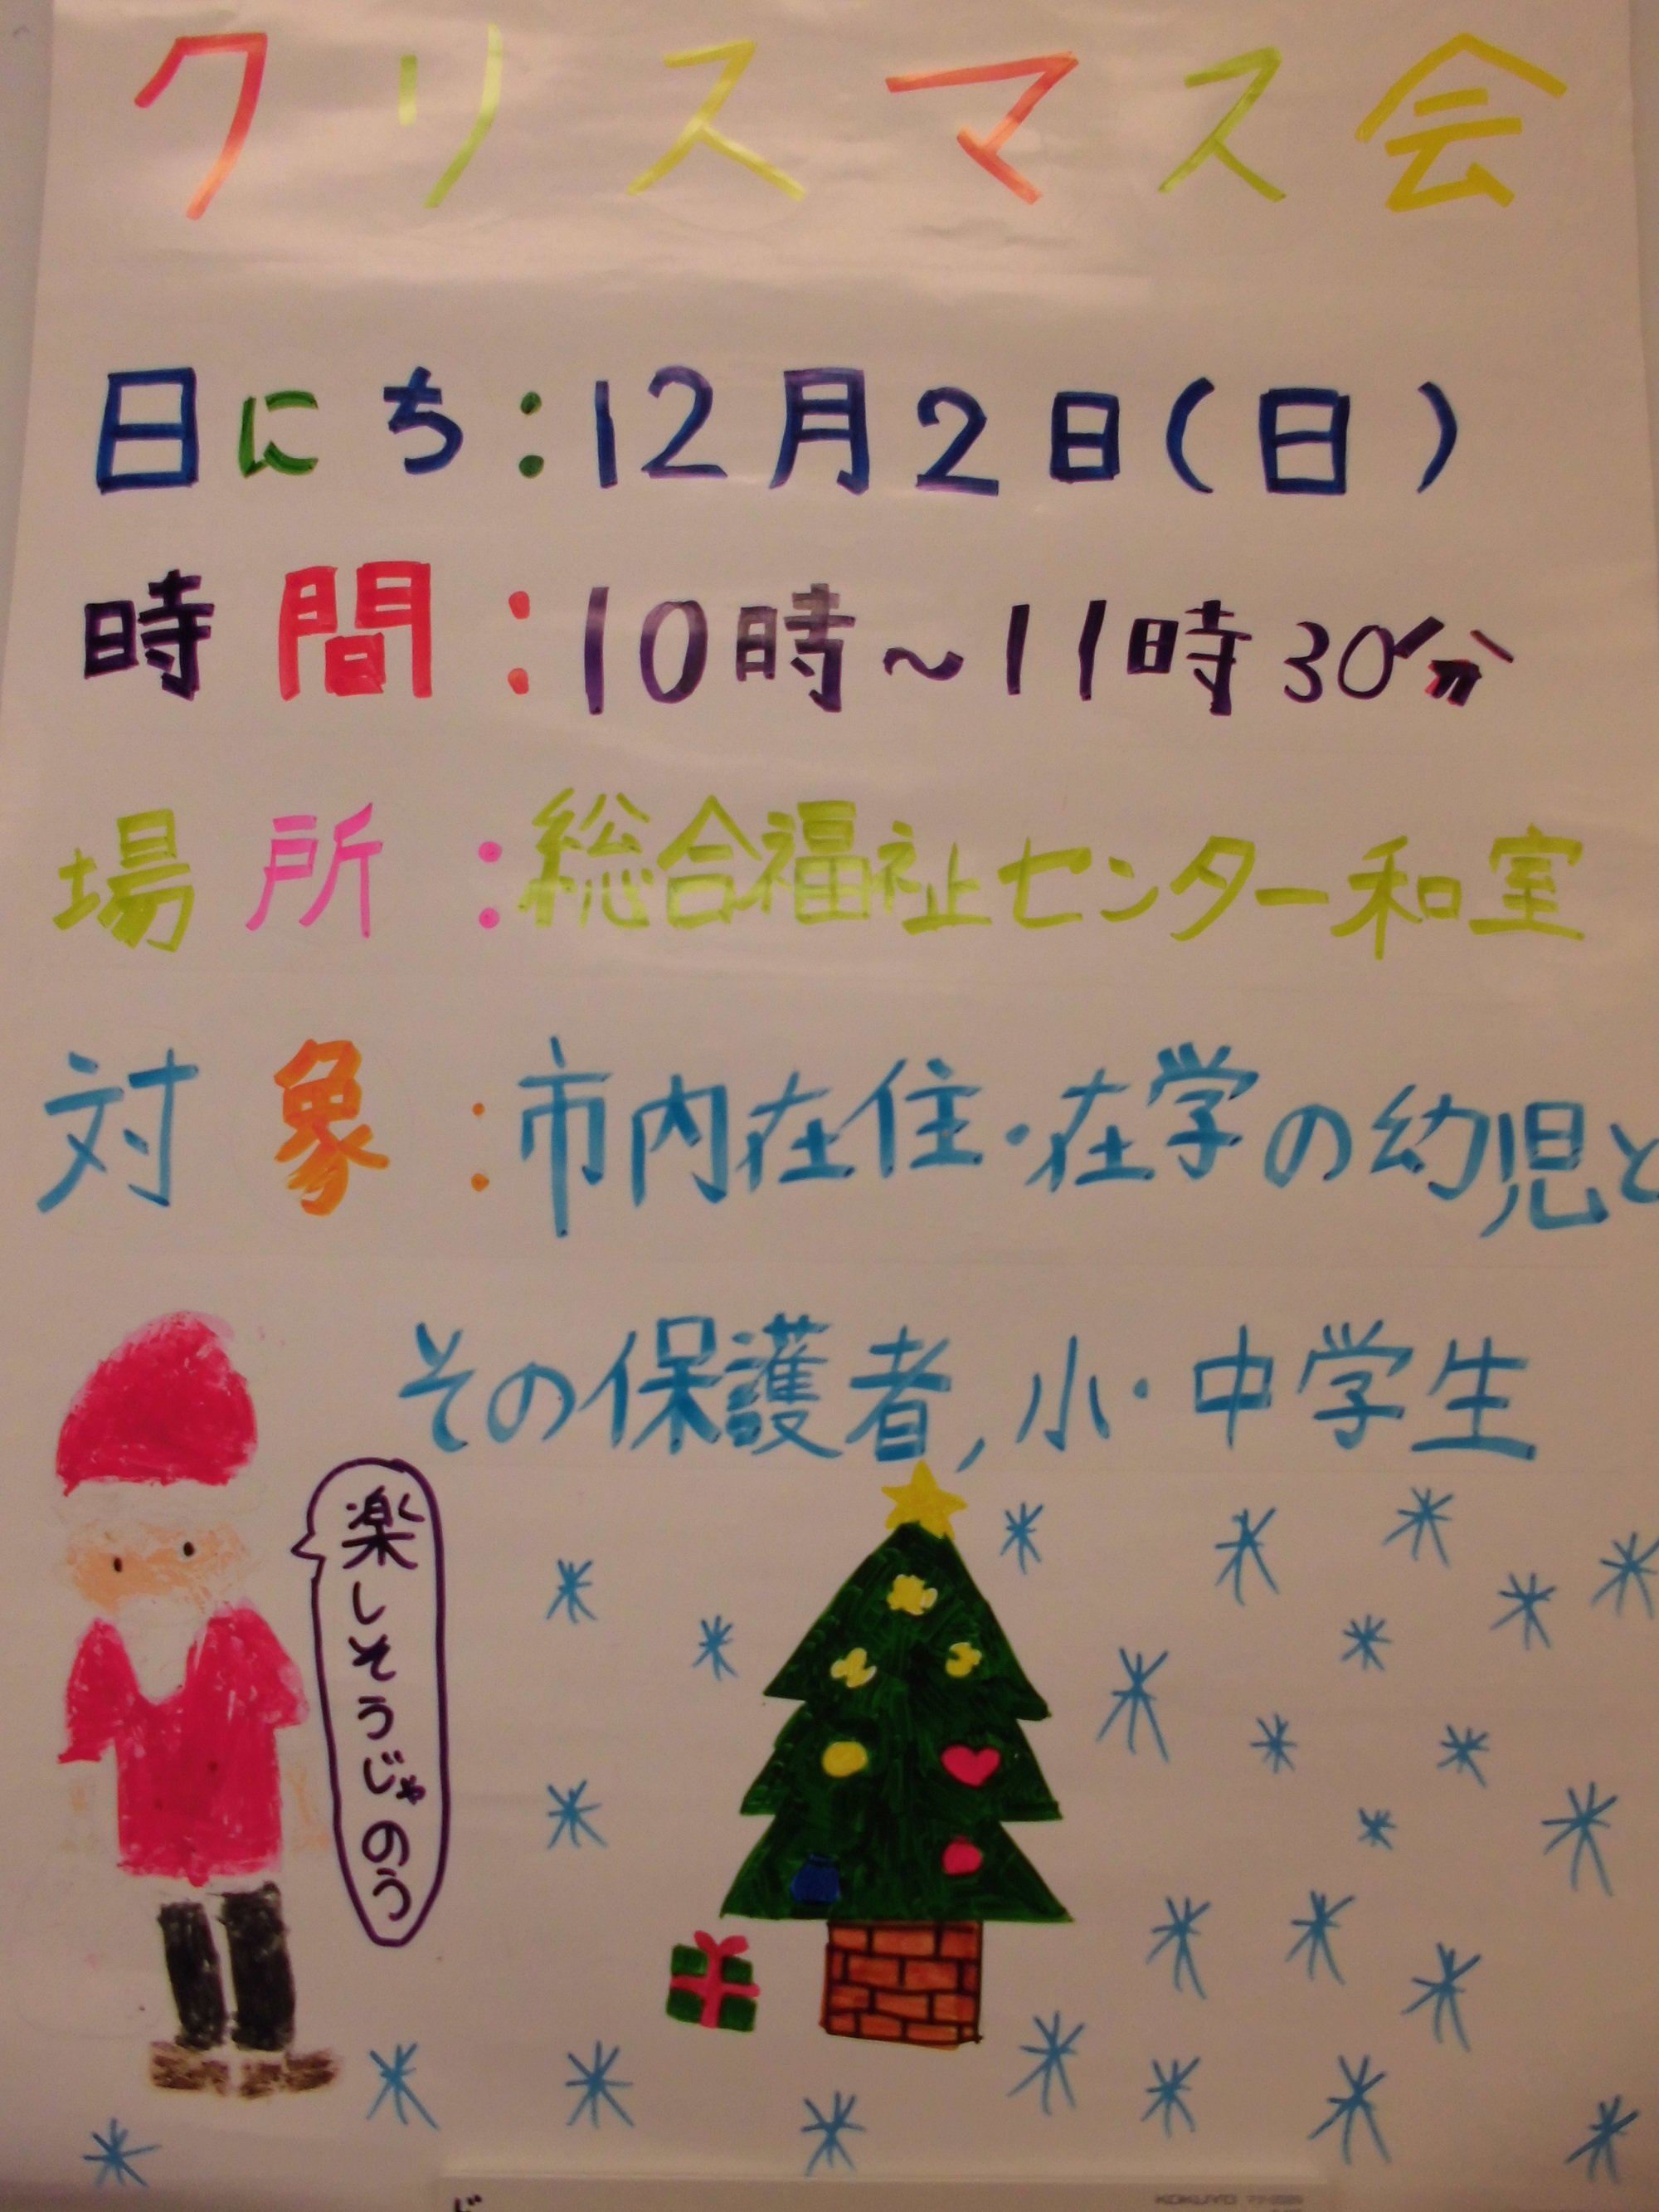 クリスマス会
日にち:12月2日(日)
時間:10時~11時30分
場所:総合福祉センター和室
対象:市内在住・在学の幼児と
その保護者,小・中学生
楽しそうじゃのう